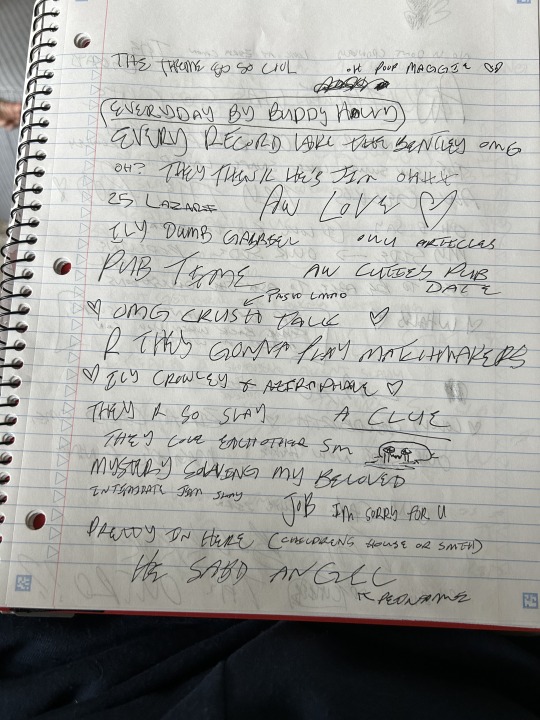 THE THEME SO SO COOL OH POOR MAGGIE
EVERYDAY BY BUDDY HOLLY
EVERY RECORD LIKE THE BENTLEY OMG
OH? THEY THINK HE'S JIM OHHH
25 LAZARII AW LOVE
ILY DUMB GABRIEL OWU ARTICLES
PUB TIME AW CUTIES PUB
DATE
OMG CRUSH TALK
R THEY GONNA PLAY MATCHMAKERS
ILY CROWLEY & AZIRAPHALE
THEY R SO SLAY A CLUE
THEY LOVE EACHOTHER SM
MYSTERY SOLVING MY BELOVED
INTERROGATE JIM SLAY JOB IM SORRY FOR U
PRETTY IN HERE (CHILDRENS HOUSE OR SMTH)
HE SAID ANGEL